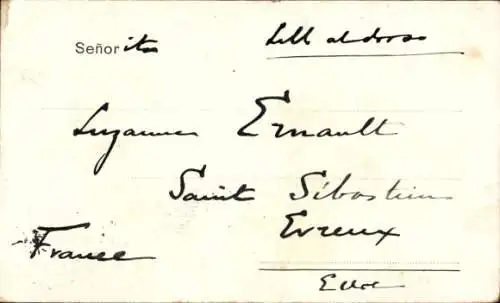 Señorita
Suzanne Ernault
Saint Sébastien
Evreux
France
Eure